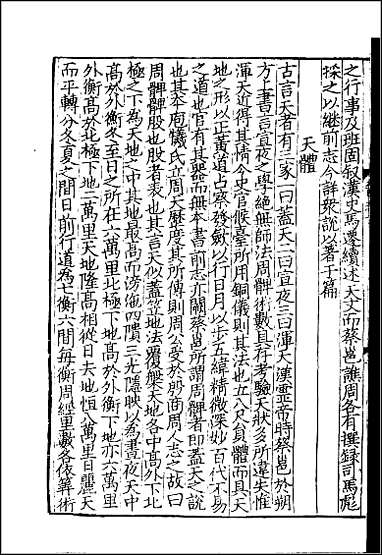 之行事及班固叙漢史馬遷續述天文而蔡邕譙周各有撰錄司馬彪
採之以繼前志今詳衆說以著于篇
天體
古言天者有三家一曰蓋天二曰宣夜三曰渾天漢靈帝時蔡邕於朔
方上書言宣夜之學絶無師法周髀術數具存考驗天狀多所違失惟
渾天近得其情今史官候臺所用銅儀則其法也立八尺員體而具天
地之形以正黃道占察發斂以行日月以步五緯精微深妙百代不易
之道也官有其器而無本書前志亦闕蔡邕所謂周髀者即蓋天之說
也其本庖犧氏立周天曆度其所傳則周公受於殷商周人志之故曰
周髀髀股也股者表也其言天似蓋笠地法覆槃天地各中高外下北
極之下為天地之中其地最高而滂沲四隤三光隱映以為晝夜天中
高於外衡冬至日之所在六萬里北極下地高於外衡下地亦六萬里
外衡高於北極下地二萬里天地隆高相從日去地恒八萬里日麗天
而平轉分冬夏之間日前行道為七衡六間每衡周經里數各依筭術